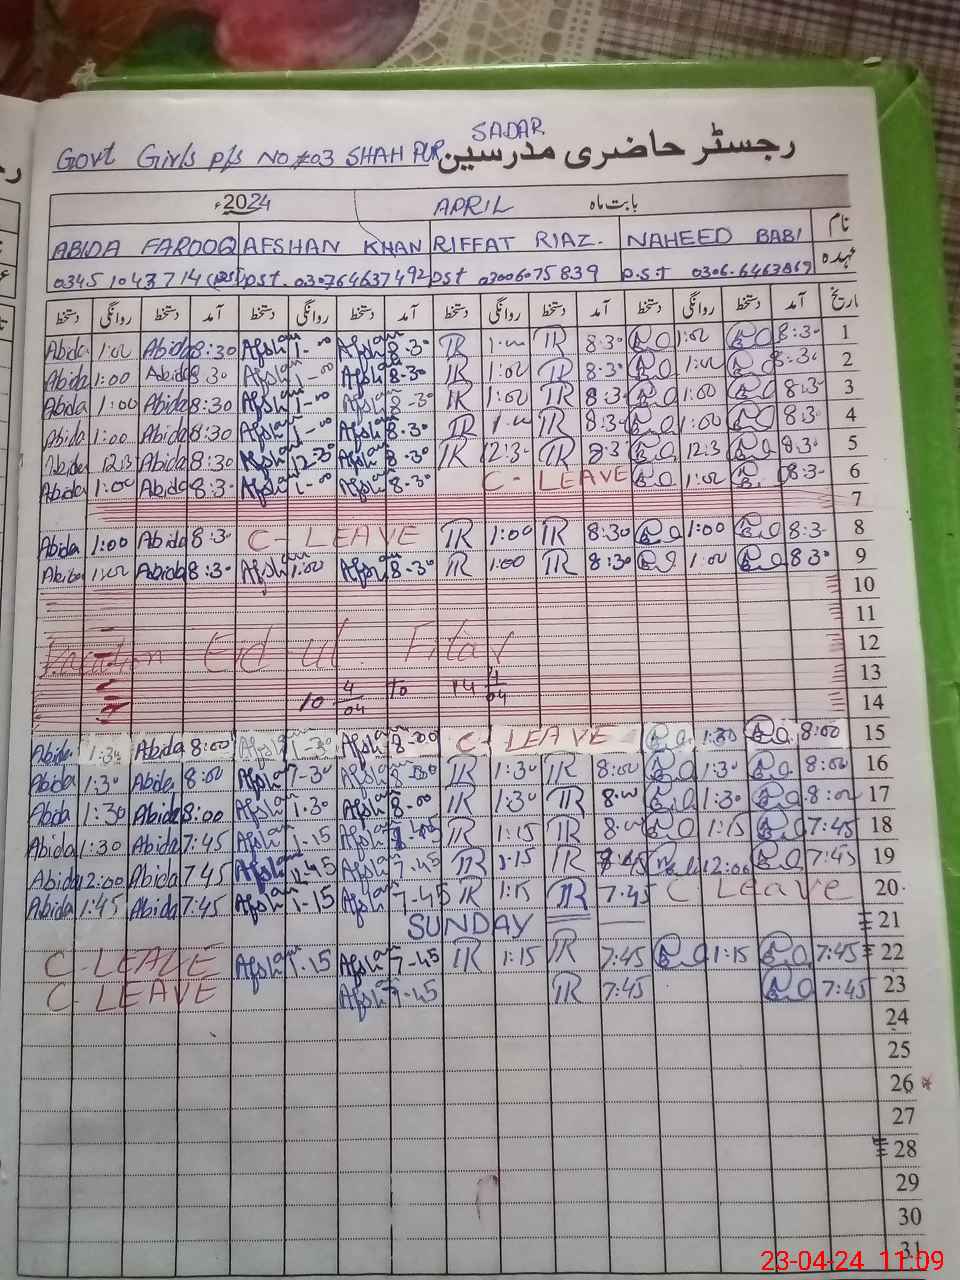 SADAR
Govt Girls p/s No #03 SHAH PUR رجسٹر حاضری مدرسین
2024ء APRIL بابت ماہ
ABIDA FAROOQ AFSHAN KHAN RIFFAT RIAZ. NAHEED BABI نام
pst. 030764637492 pst 03006075839 P.S.T 0306.6463869 عہدہ
دستخط روانگی دستخط آمد دستخط روانگی دستخط آمد دستخط روانگی دستخط آمد دستخط روانگی دستخط آمد تاریخ
Abida 1:00 Abida 8:30 Afshan 1-00 Afshan 8-30 TR 1:00 TR 8:30 1:00 8:30 1
Abida 1:00 Abida 8:30 Afshan 1-00 Afshan 8-30 TR 1:00 TR 8:30 1:00 8:30 2
Abida 1:00 Abida 8:30 Afshan 1-00 Afshan 8-30 TR 1:00 TR 8:30 1:00 8:30 3
Abida 1:00 Abida 8:30 Afshan 1-00 Afshan 8-30 TR 1:00 TR 8:30 1:00 8:30 4
Abida 12:3 Abida 8:30 Afshan 12-30 Afshan 8-30 TR 12:30 TR 8:3 12:3 8:30 5
Abida 1:00 Abida 8:3 Afshan 1-00 Afshan 8-30 C-LEAVE 1:00 8:3 6
7
Abida 1:00 Abida 8:3 C-LEAVE TR 1:00 TR 8:30 1:00 8:3 8
Abida 1:00 Abida 8:30 Afshan 1:00 Afshan 8-30 TR 1:00 TR 8:30 1:00 8:30 9
10
11
Vacation Eid ul. Fitar 12
10 4/04 To 14 4/04 13
14
Abida 1:30 Abida 8:00 Afshan 1-30 Afshan 8-00 C-LEAVE 1:30 8:00 15
Abida 1:30 Abida 8:00 Afshan 1-30 Afshan 8-00 TR 1:30 TR 8:00 1:30 8:00 16
Abida 1:30 Abida 8:00 Afshan 1-30 Afshan 8-00 TR 1:30 TR 8:00 1:30 8:00 17
Abida 1:30 Abida 7:45 Afshan 1-15 Afshan 7-45 TR 1:15 TR 8:00 1:15 7:45 18
Abida 12:00 Abida 7:45 Afshan 12-45 Afshan 7-45 TR 1:15 TR 7:45 12:00 7:45 19
Abida 1:45 Abida 7:45 Afshan 1-15 Afshan 7-45 TR 1:15 TR 7:45 C Leave 20
SUNDAY 21
C-LEAVE Afshan 1.15 Afshan 7-45 TR 1:15 TR 7:45 1:15 7:45 22
C-LEAVE Afshan 7-45 TR 7:45 7:45 23
24
25
26 *
27
28
29
30
31
23-04-24 11:09